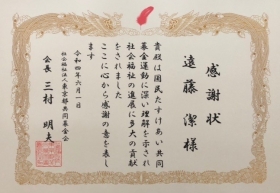 感謝状
遠藤潔様
貴殿は国民たすけあい共同
募金運動に深い理解を示され
社会福祉の進展に多大の貢献
をされました
ここに心から感謝の意を表し
ます
令和四年六月一日
社会福祉法人東京都共同募金会
会長 三村明夫